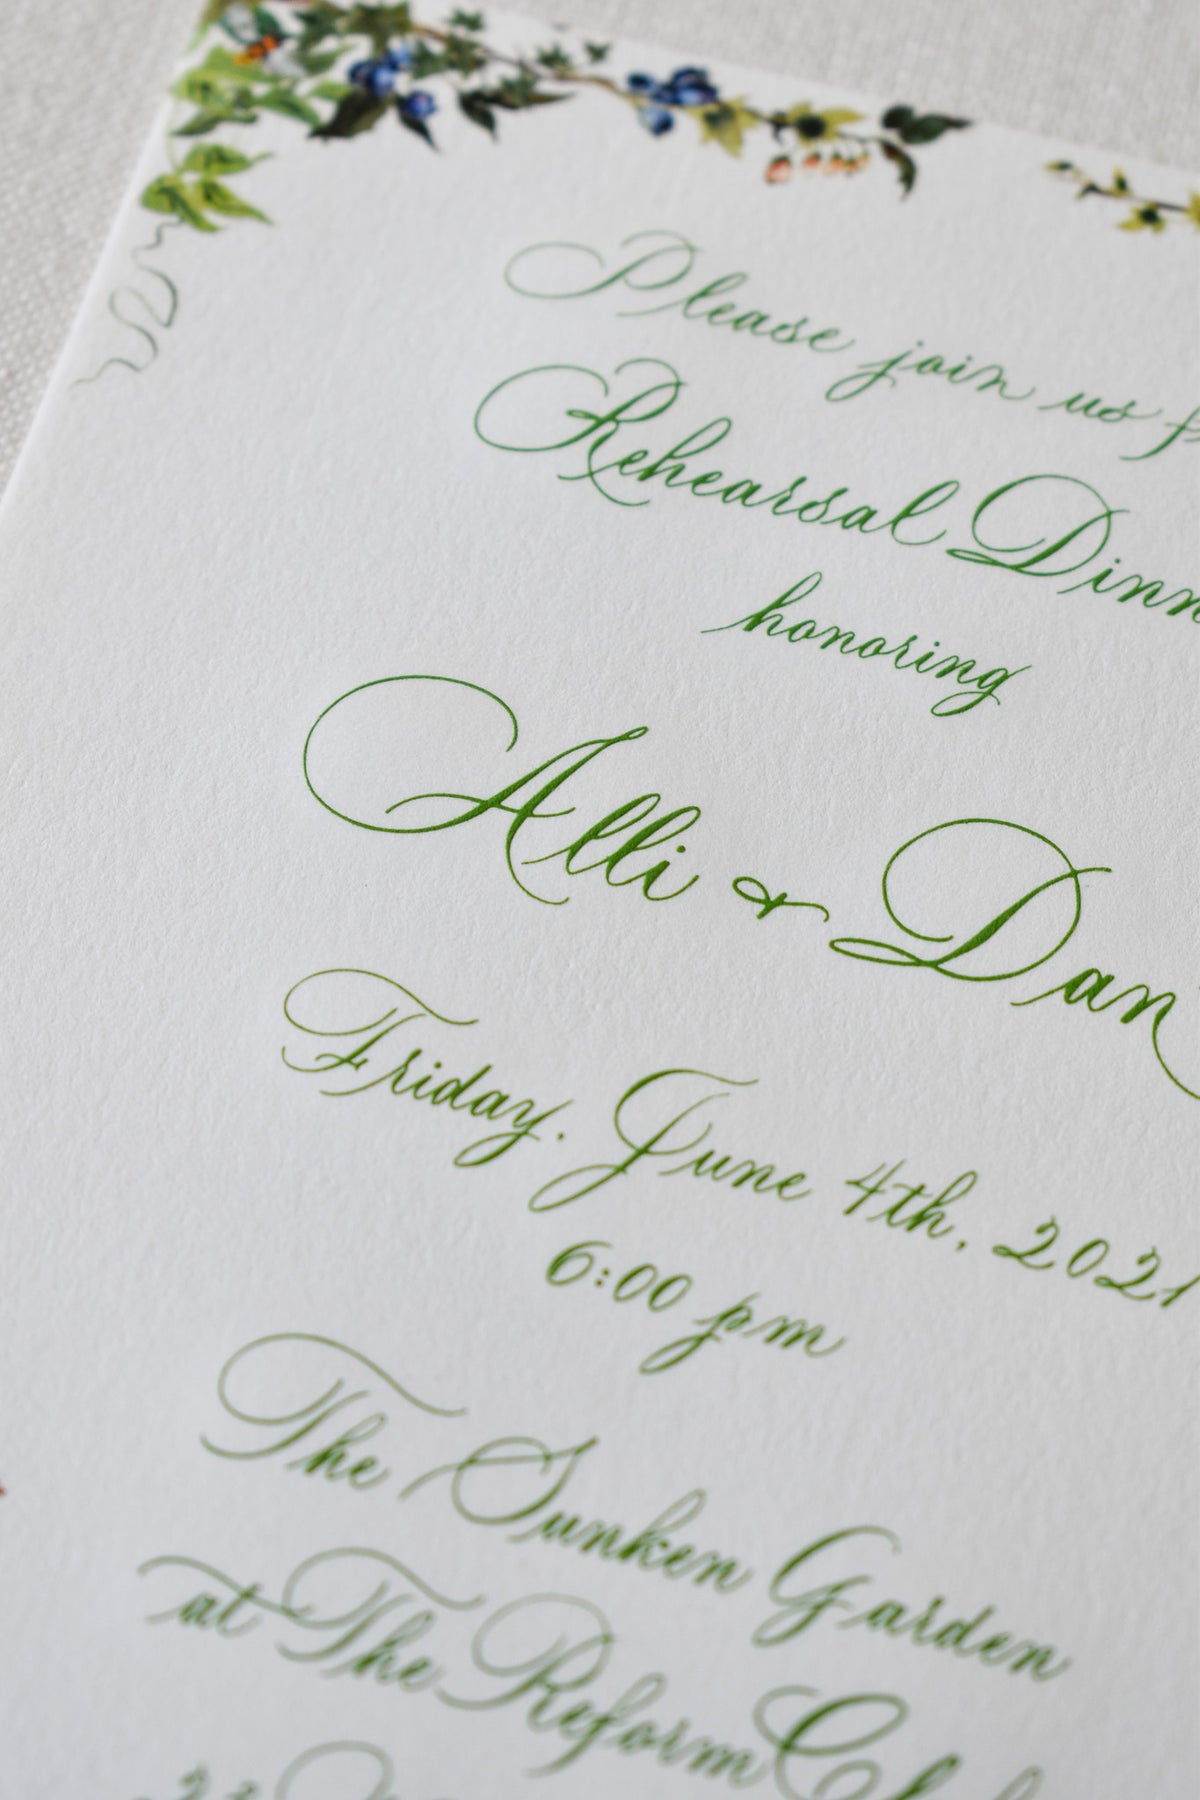 Please join us
Rehearsal Dinn
honoring
Alli & Dan
Friday, June 4th, 2021
6:00 pm
The Sunken Garden
at The Reform Cl